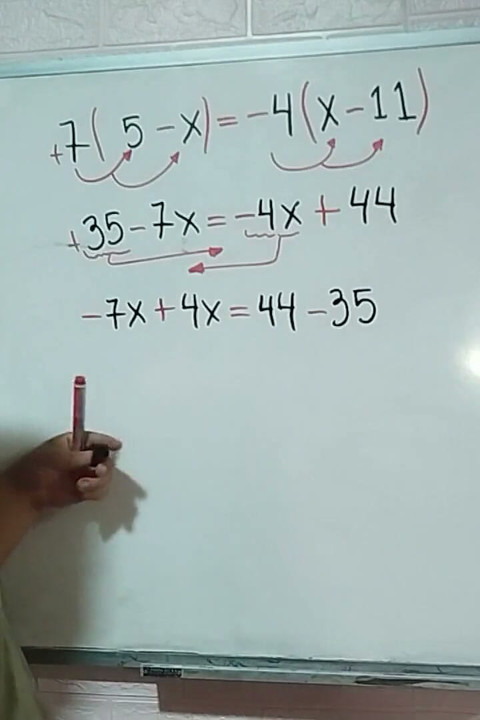 +7(5-x)=-4(x-11)
+35-7x=-4x+44
-7x+4x=44-35